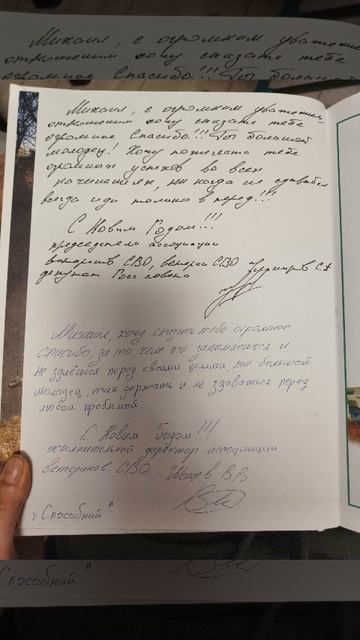 Михаил, с огромным уважени
отношением хочу сказать тебе
огромное Спасибо!!! Ты большой
Михаил, с огромным уважени
отношением хочу сказать тебе
огромное Спасибо!!! Ты большой
молодец! Хочу пожелать тебе
огромных успехов во всех
начинаниях, ни когда не сдавайся
всегда иди только в перед!!!
С Новым Годом!!!
председатель ассоциации
ветеранов СВО, ветеран СВО
депутат Рос совета
Михаил, хочу сказать тебе огромное
спасибо, за то чем ты занимаешься и
не здаёшься перед своими целями, ты большой
молодец, так держать и не здаваться перед
любой проблемой.
С Новым Годом!!!
исполнительный директор ассоциации
ветеранов СВО, В.В.
"Способный"
Способный"